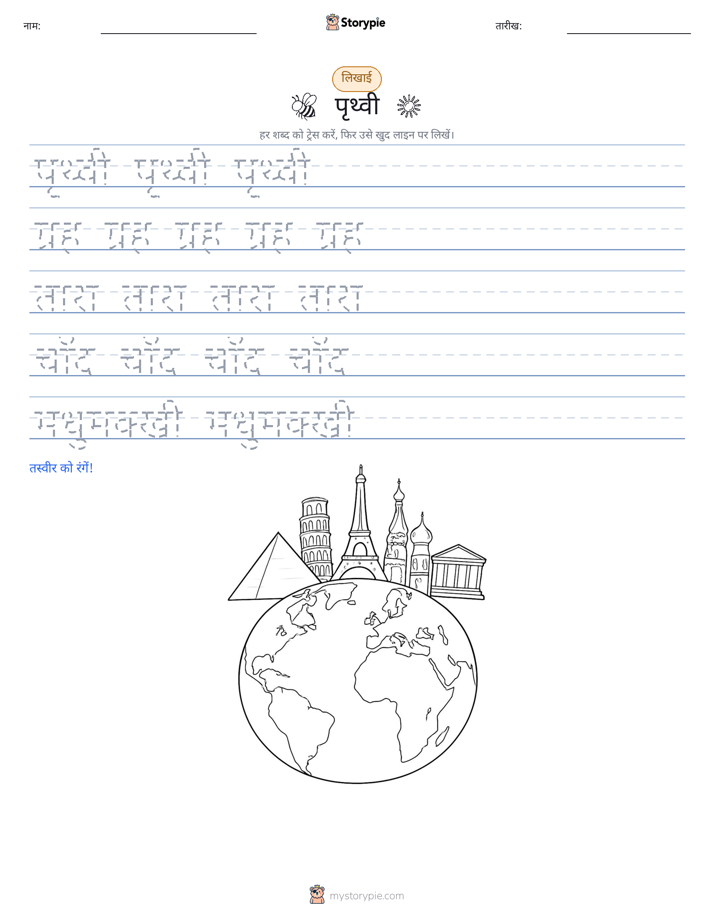 नाम:
Storypie
तारीख:
लिखाई
पृथ्वी
हर शब्द को ट्रेस करें, फिर उसे खुद लाइन पर लिखें।
पृथ्वी पृथ्वी पृथ्वी
ग्रह ग्रह ग्रह ग्रह ग्रह
तारा तारा तारा तारा
चाँद चाँद चाँद चाँद
मधुमक्खी मधुमक्खी
तस्वीर को रंगें!
mystorypie.com